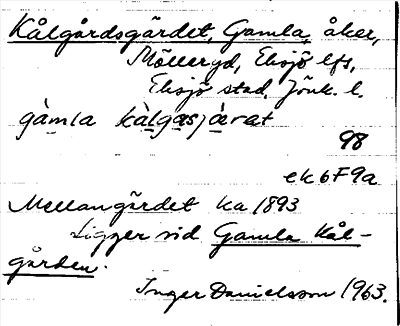 Kålgårdsgärdet, Gamla, åker,
Mölleryd, Eksjö lfs,
Eksjö stad, Jönk. l.
gàmla kàlgasjàrat
98
ek 6F9a
Mellangärdet ka 1893
Ligger vid Gamla Kål-
gården.
Inger Danielsson 1963.